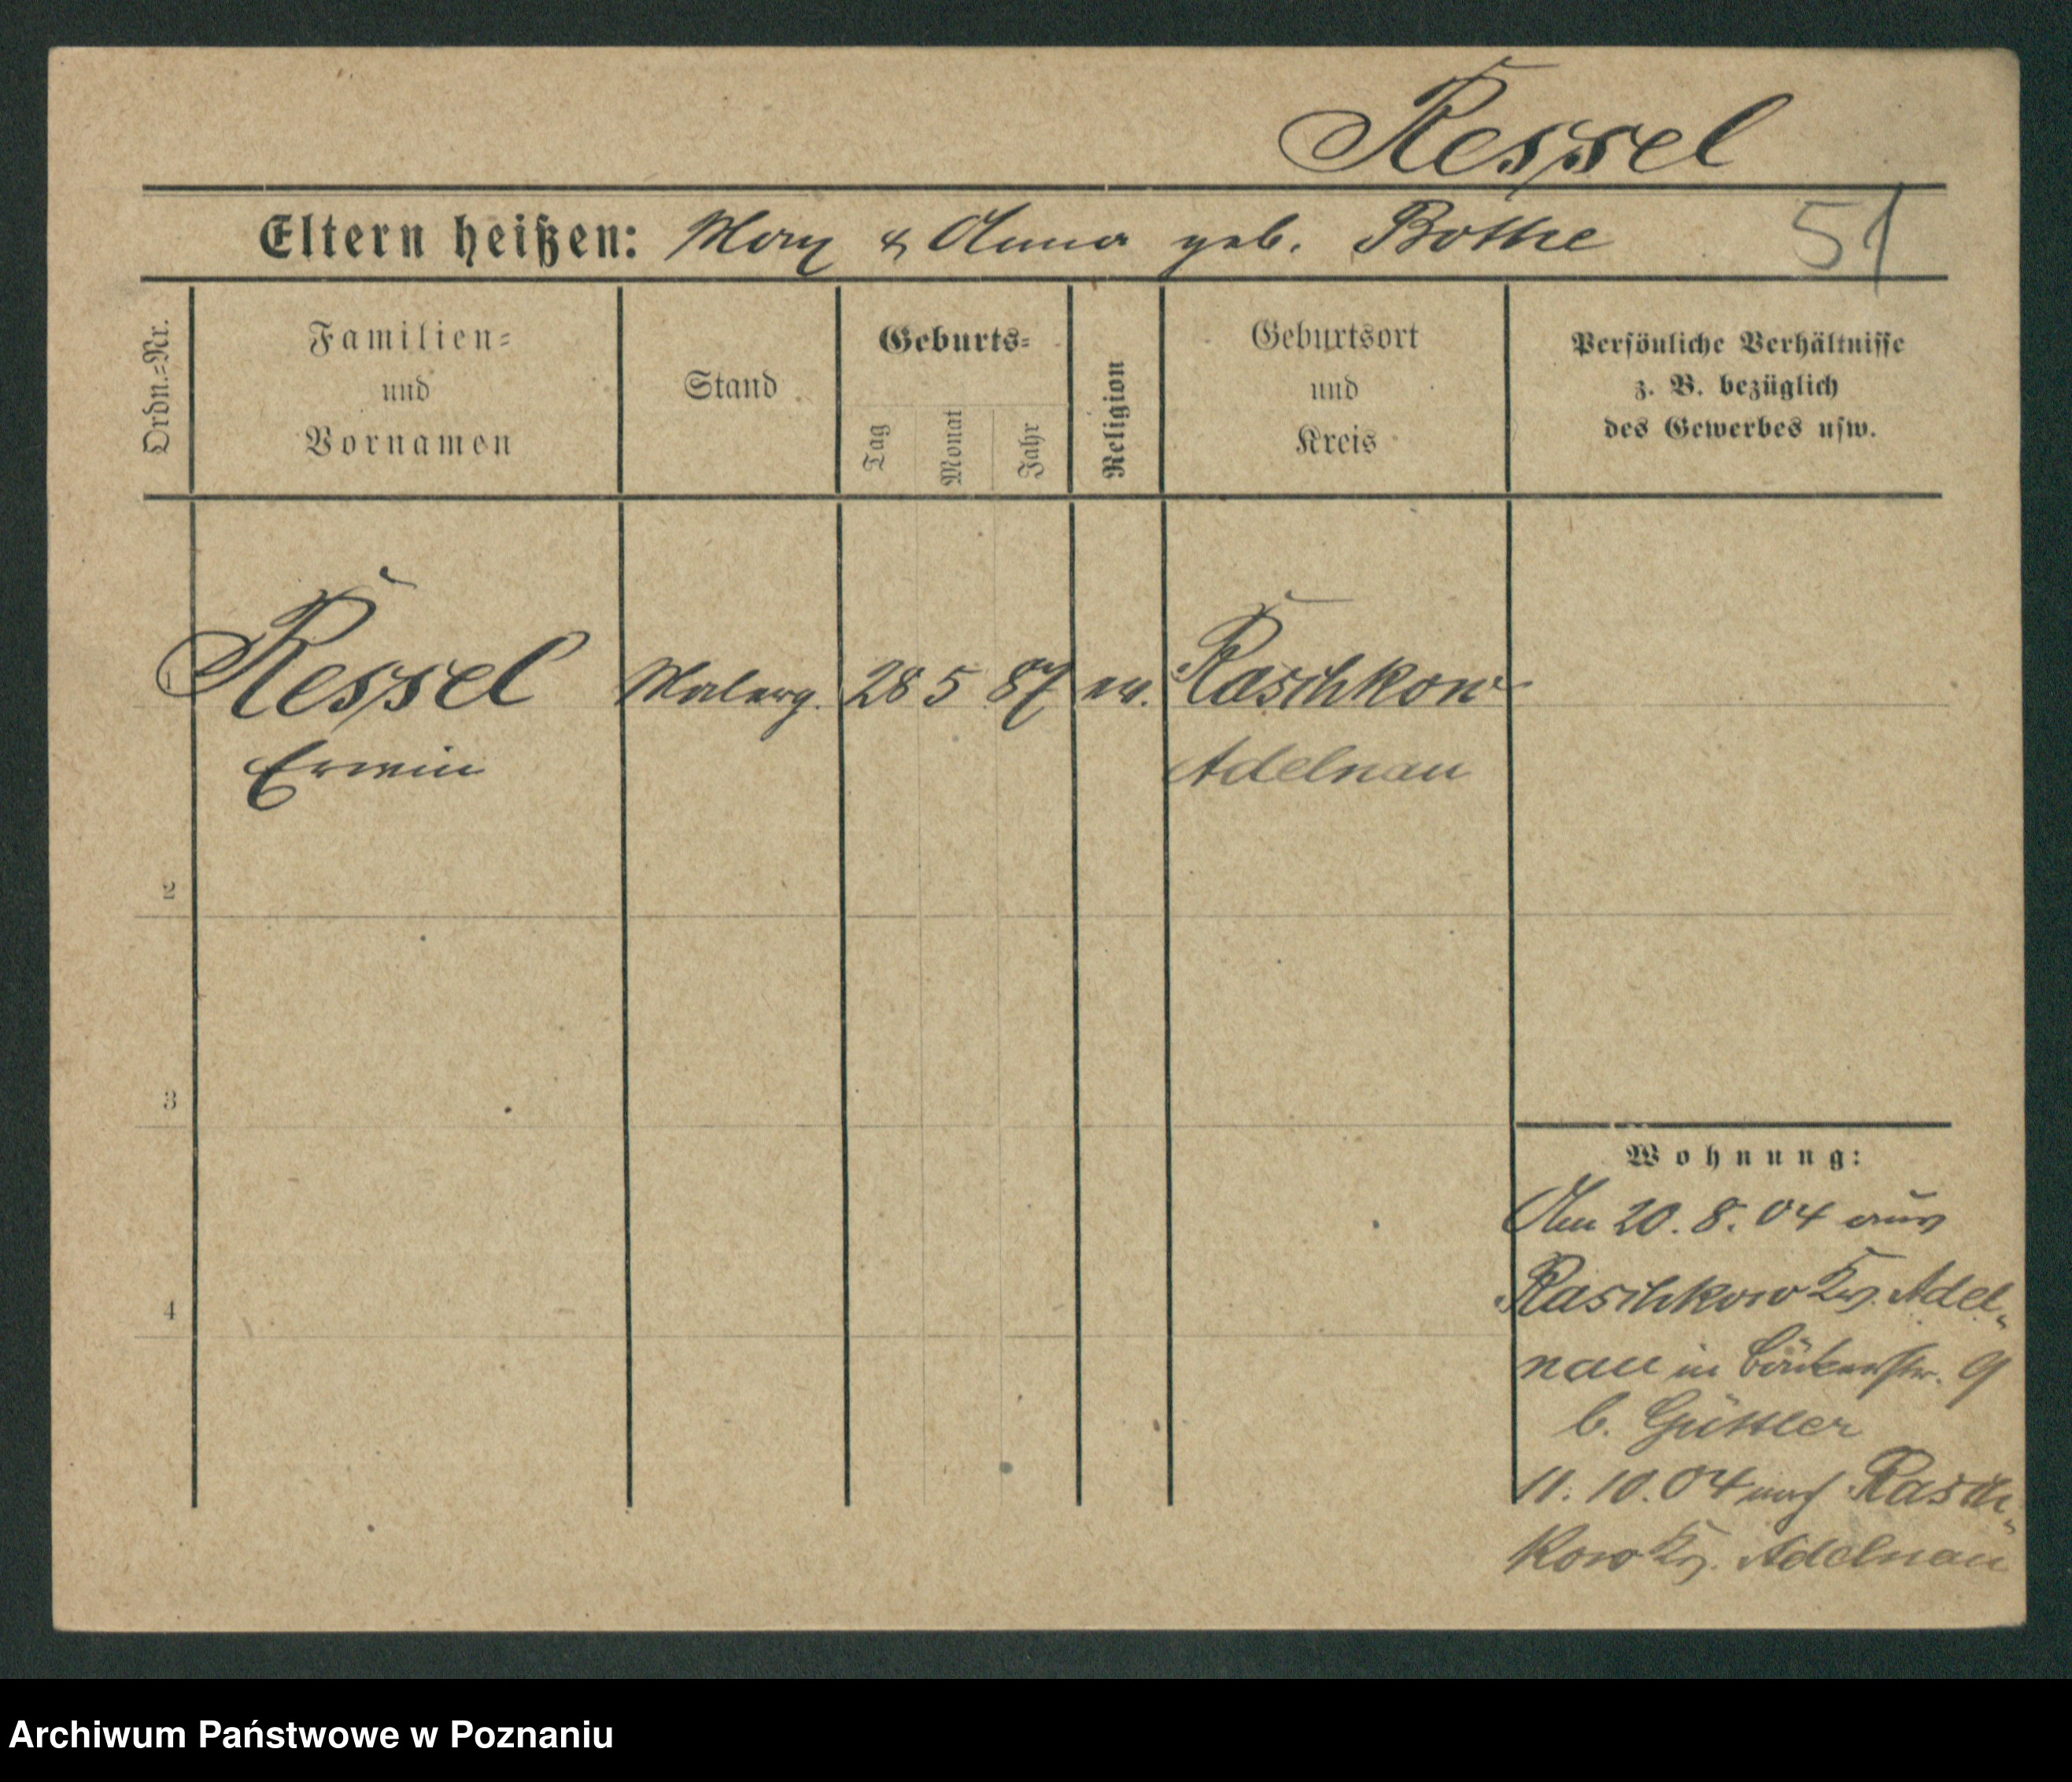 Kessel
Eltern heißen: Max & Anna geb. Bothe 51
Ordn.=Nr.
Familien=
und
Vornamen
Stand
Geburts=
Tag
Monat
Jahr
Religion
Geburtsort
und
Kreis
Persönliche Verhältnisse
z. B. bezüglich
des Gewerbes usw.
1 Kessel Malerg. 28 5 87 ev. Raschkow
Erwin Adelnau
2
3
4
Wohnung:
Am 20. 8. 04 aus
Raschkow Kr. Adel-
nau in Bäckerstr. 9
b. Güttler
11. 10. 04 nach Rasch-
kow Kr. Adelnau
Archiwum Państwowe w Poznaniu